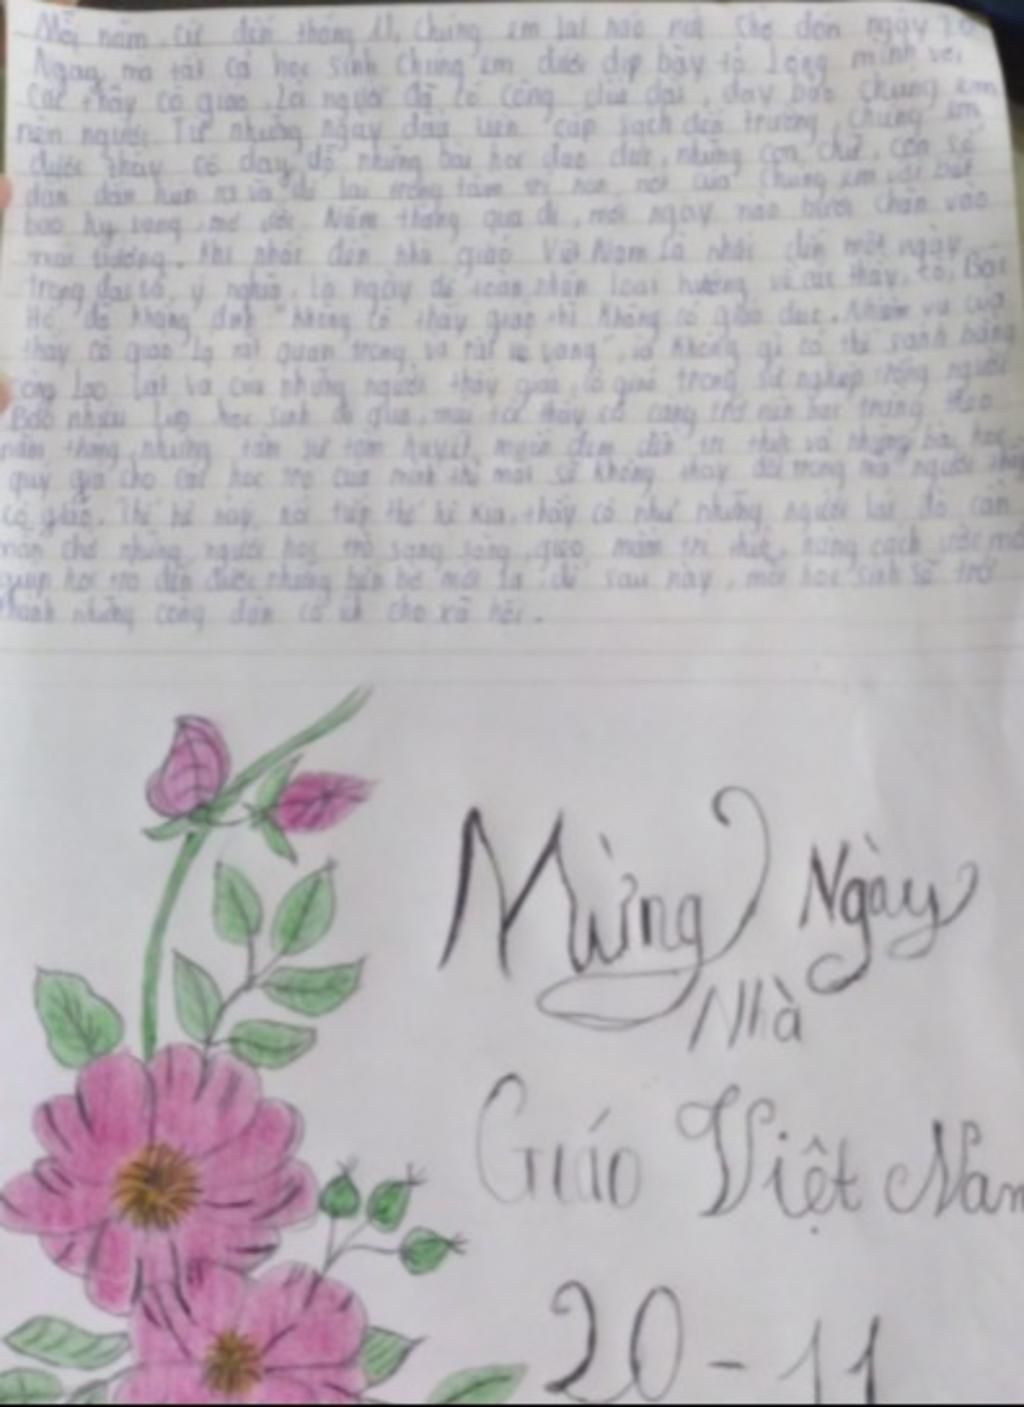 Mỗi năm cứ đến tháng 11, Chúng em lại náo nức chờ đón ngày 20
Ngày mà tất cả học sinh Chúng em được dịp bày tỏ lòng mình với
các thầy cô giáo, người đã có công dạy bảo chúng em
nên người. Từ những ngày đầu tiên cắp sách đến trường, chúng em
được thầy cô dạy dỗ những bài học đạo đức, những con chữ, con số
dần dần và để lại trong tâm trí của chúng em
bao hy vọng, mơ ước. Năm tháng qua đi, mỗi ngày bước chân vào
mái trường. Khi nhắc đến nhà giáo Việt Nam là nhắc đến một ngày
trọng đại, ý nghĩa, là ngày để toàn nhân loại hướng về các thầy, cô. Bác
Hồ đã khẳng định "không có thầy giáo thì không có giáo dục. Nhiệm vụ của
thầy cô giáo là rất quan trọng và rất vẻ vang", và không gì có thể sánh bằng
công lao của những người thầy giáo, cô giáo trong sự nghiệp trồng người
Bao nhiêu học sinh đi qua, mái tóc thầy cô càng trở nên bạc trắng theo
năm tháng nhưng tâm huyết muốn đem đến tri thức và những bài học
quý giá cho các học trò của mình thì mãi sẽ không thay đổi trong mỗi người thầy
cô giáo. Thế hệ này nối tiếp thế hệ kia, thầy cô như những người lái đò cần
mẫn chở những người học trò sang sông, gieo mầm tri thức, ước mơ
giúp học trò đến được những bến bờ mới để sau này, mỗi học sinh sẽ trở
thành những công dân có ích cho xã hội.
Mừng Ngày
Nhà
Giáo Việt Nam
20 - 11